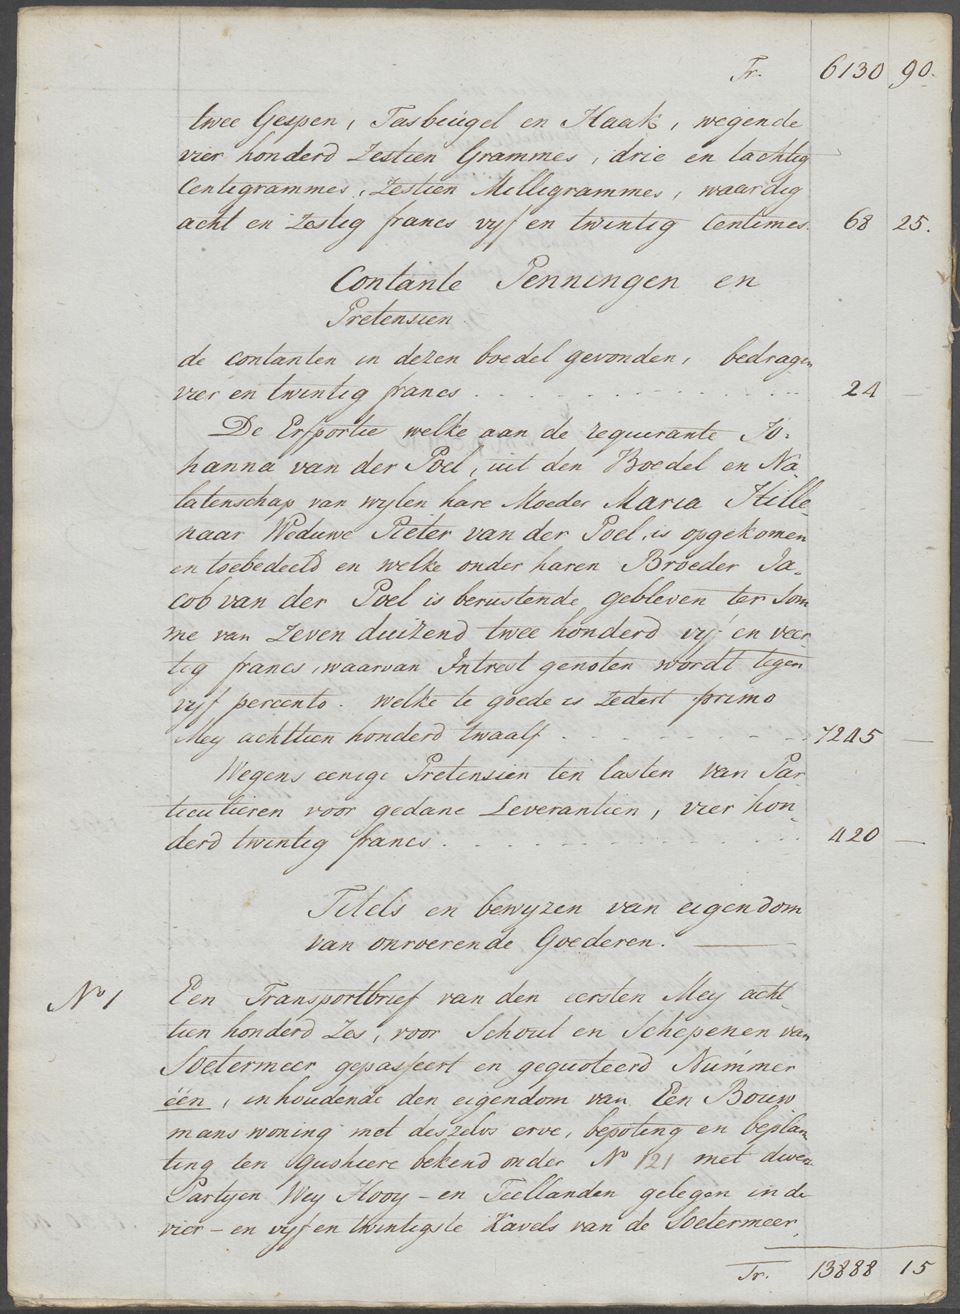 Tr. 6130 90.
twee Gespen, Tasbeugel en Haak, wegende
vier honderd Zestien Grammes, drie en tachtig
Centigrammes, Zestien Milligrammes, waardig
acht en Zestig francs vyf en twintig Centimes. 68 25.
Contante Penningen en
Pretensien
de contanten in dezen boedel gevonden, bedragen
vier en twintig francs . . . . . . . . . 24 —
De Erfportie welke aan de requirante Jo-
hanna van der Poel, uit den Boedel en Na
latenschap van wylen hare Moeder Maria Hille-
naar Weduwe Pieter van der Poel, is opgekomen
en toebedeeld en welke onder haren Broeder Ja-
cob van der Poel is berustende gebleven ter Som
me van Zeven duizend twee honderd vyf en veer
tig francs, waarvan Intrest genoten wordt tegen
vyf percento. welke te goede is zedert primo
Mey achttien honderd twaalf . . . . . . . 7245 —
Wegens eenige Pretensien ten lasten van Par
ticulieren voor gedane Leverantien, vier hon-
derd twintig francs . . . . . . . . . . 420 —
Titels en bewyzen van eigendom
van onroerende Goederen.
No 1 Een Transportbrief van den eersten Mey acht
tien honderd Zes, voor Schout en Schepenen van
Soetermeer gepasseert en gequoteerd Nummer
één, inhoudende den eigendom van Een Bouw
mans woning met deszelvs erve, bepoting en beplan
ting ten Quohiere bekend onder No 121 met diverse
Partyen Wey Hooy - en Teellanden gelegen in de
vier - en vyf en twintigste Kavels van de Soetermeer,
Tr. 13888 15